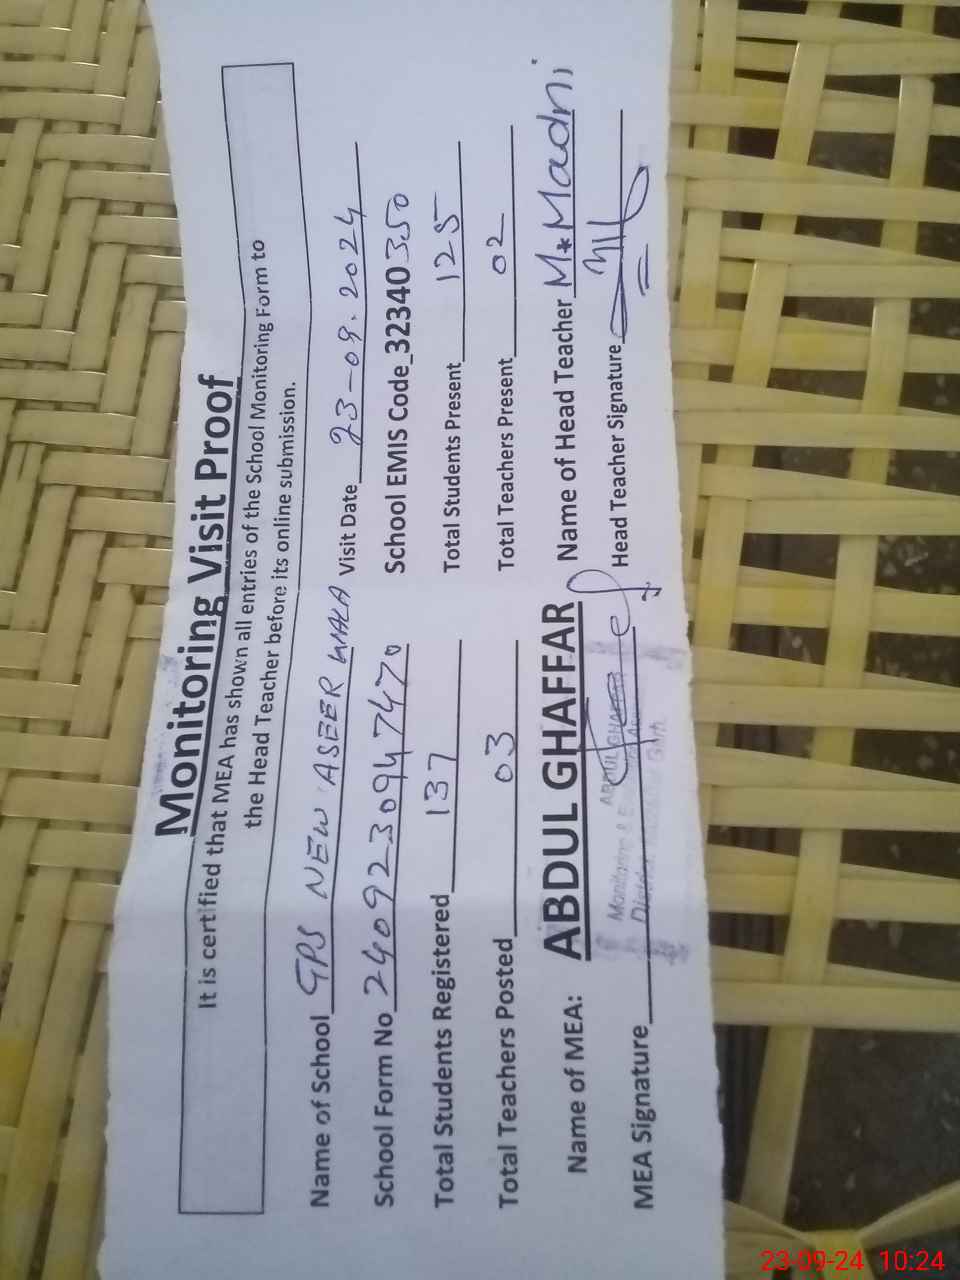 Monitoring Visit Proof
It is certified that MEA has shown all entries of the School Monitoring Form to
the Head Teacher before its online submission.
Name of School GPS NEW ASEER WALA Visit Date 23-09.2024
School Form No 2409230947470 School EMIS Code 32340350
Total Students Registered 137 Total Students Present 125
Total Teachers Posted 03 Total Teachers Present 02
Name of MEA: ABDUL GHAFFAR Name of Head Teacher M*Madni
MEA Signature Head Teacher Signature
ABDUL GHAFFAR
Monitoring &
23-09-24 10:24